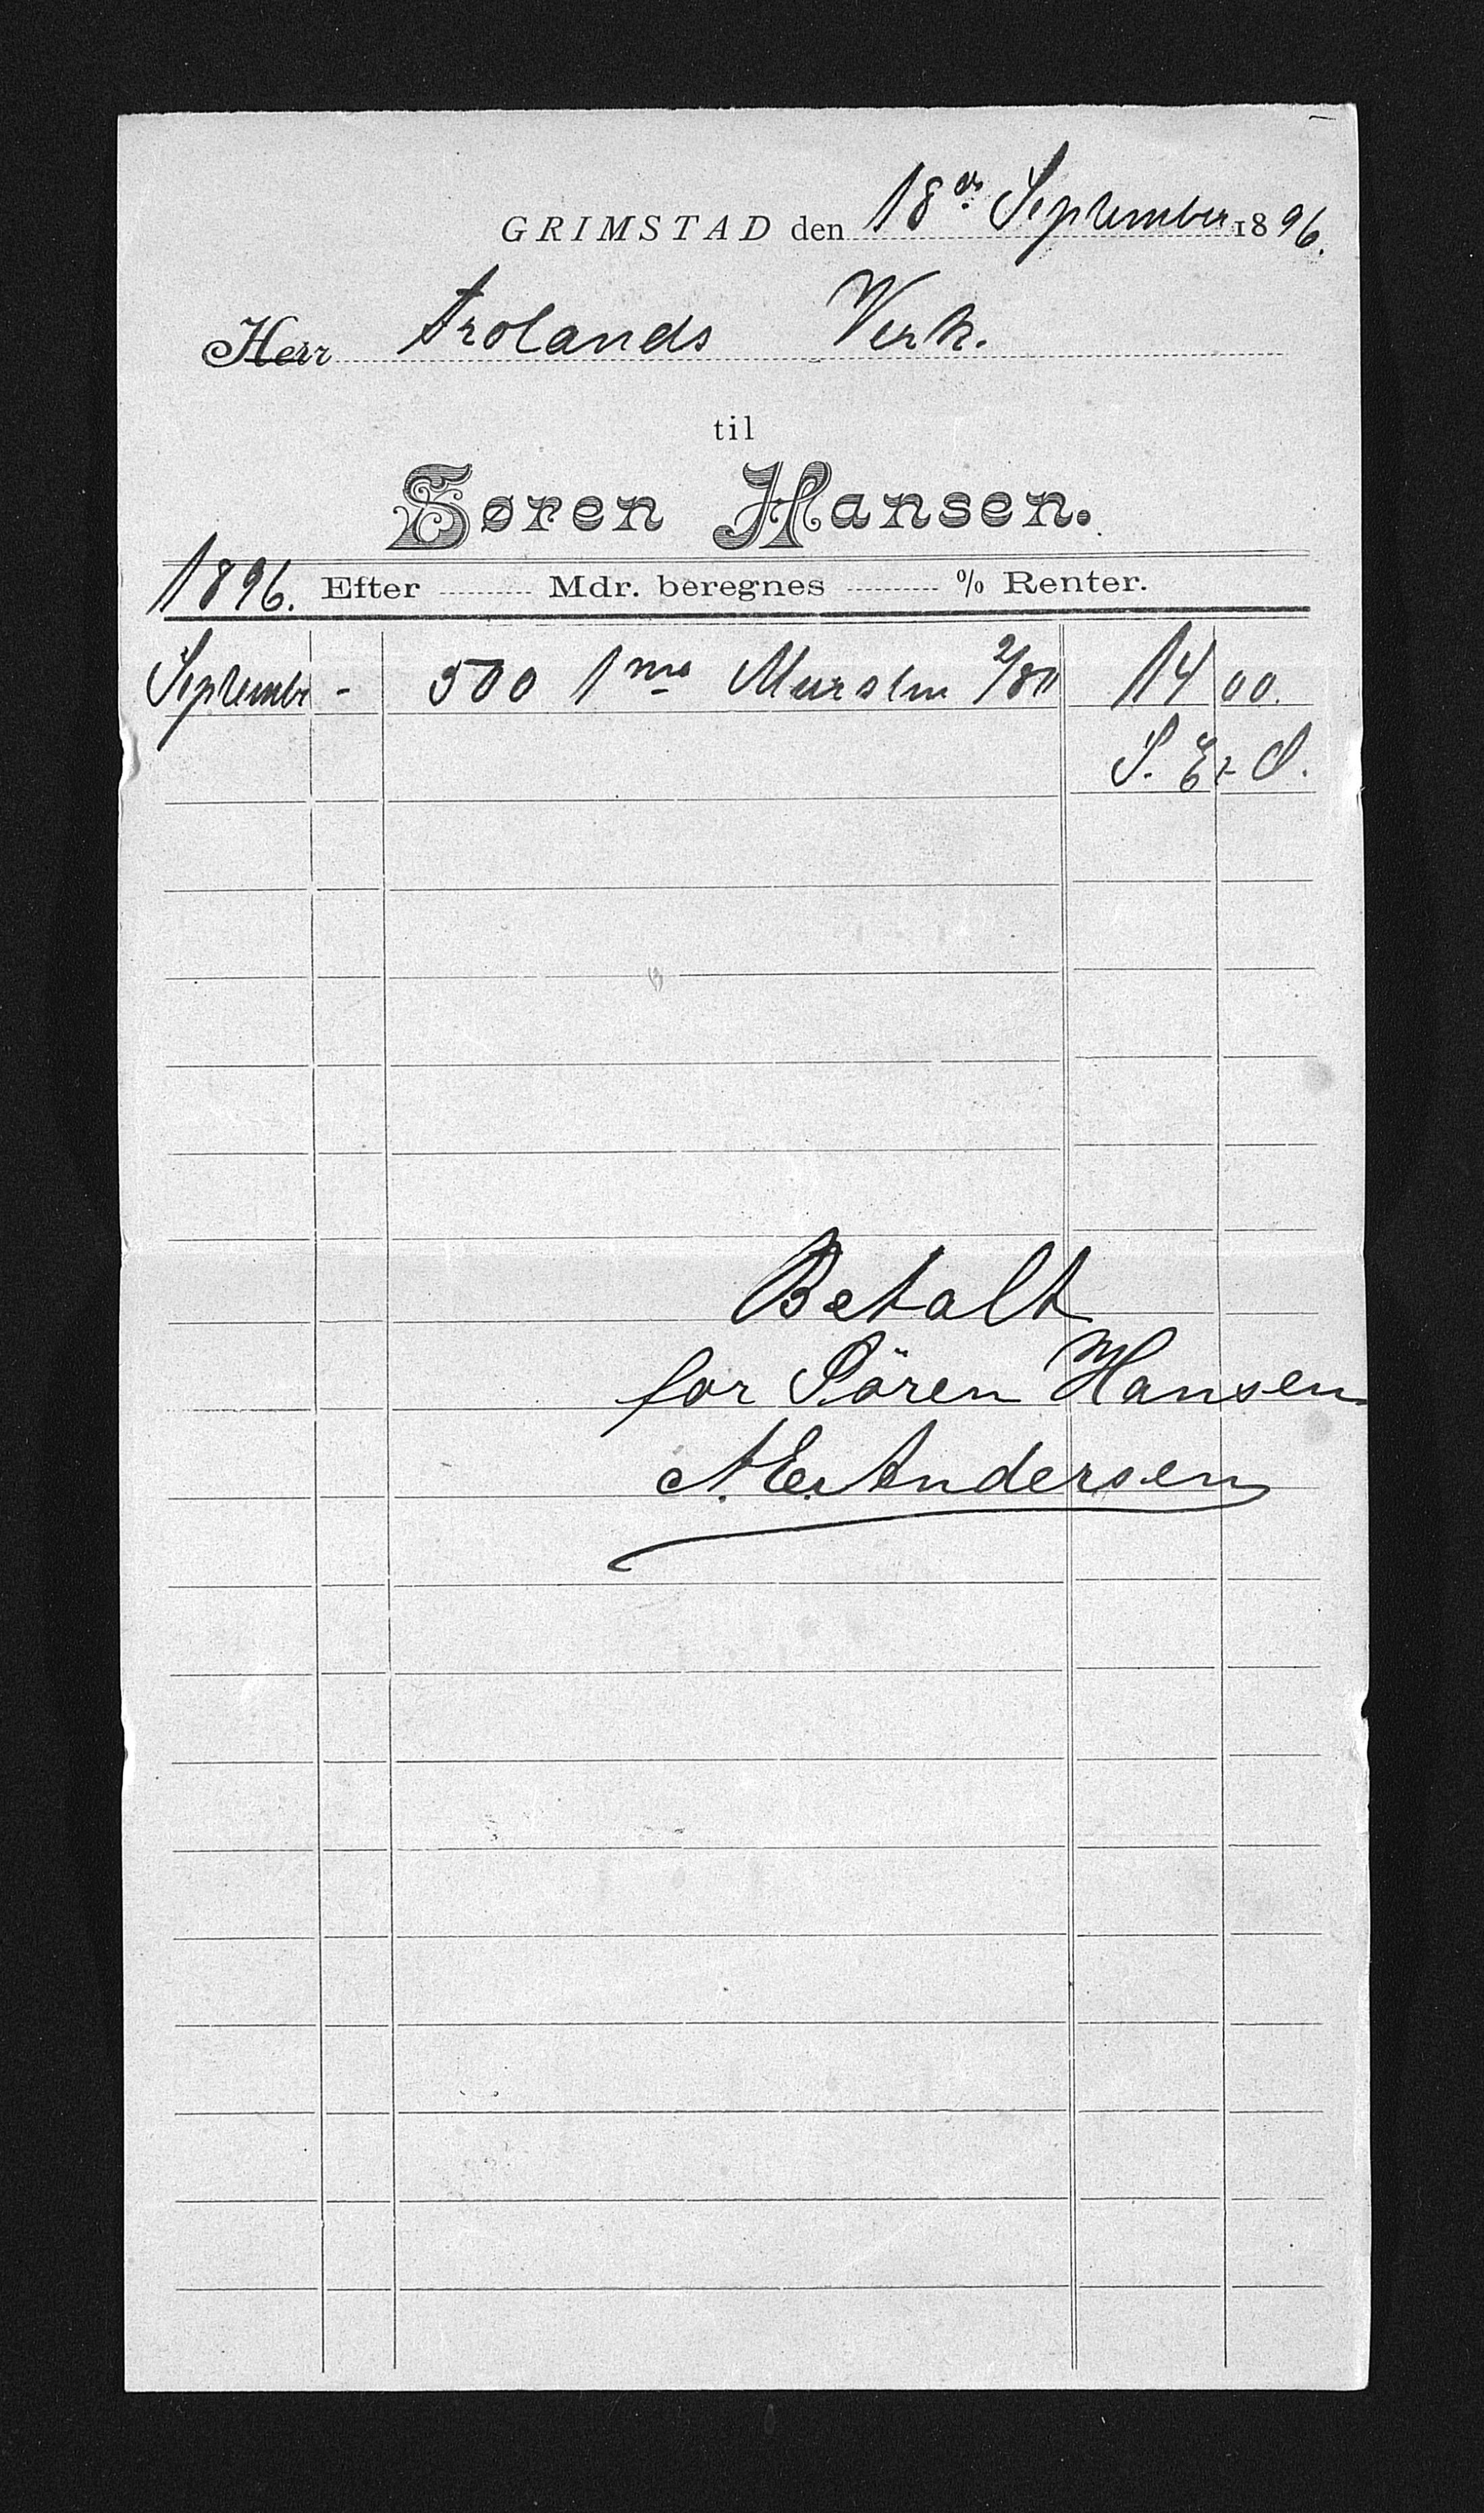 GRIMSTAD den 18de September 1896.
Herr Frolands Verk.
til
Søren Hansen.
1896. Efter Mdr. beregnes % Renter.
September - 500 1ma Mursten 2/80 14 00.
S. E. & O.
Betalt
for Sören Hansen
A. E. Andersen